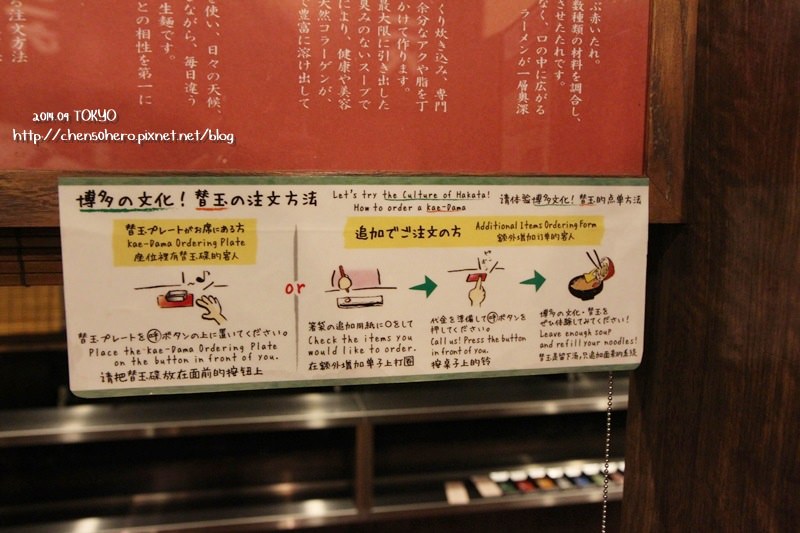 ぶ赤いたれ。
数種類の材料を調合し、
させたたれです。
なく、口の中に広がる
ラーメンが一層奥深
くり炊き込み、専門
余分なアクや脂を丁
かけて作ります。
最大限に引き出した
臭みのないスープで
により、健康や美容
天然コラーゲンが、
で豊富に溶け出して
使い、日々の天候、
ながら、毎日違う
生麺です。
との相性を第一に
る注文方法
2014.09 TOKYO
http://chen50hero.pixnet.net/blog
博多の文化!替玉の注文方法
Let's try the Culture of Hakata!
How to order a kae-Dama
请体验博多文化!替玉的点单方法
替玉プレートがお席にある方
kae-Dama Ordering Plate
座位裡有替玉碟的客人
替玉プレートを呼ボタンの上に置いてください。
Place the kae-Dama Ordering Plate
on the button in front of you.
请把替玉碟放在面前的按钮上
or
追加でご注文の方
Additional Items Ordering Form
額外增加订单的客人
箸袋の追加用紙に○をして
Check the items you
would like to order.
在額外增加单子上打圈
代金を準備して呼ボタンを
押してください。
Call us! Press the button
in front of you.
按桌子上的铃
博多の文化・替玉を
ぜひ体験してみてください!
Leave enough soup
and refill your noodles!
替玉是留下汤,只追加面条的系统